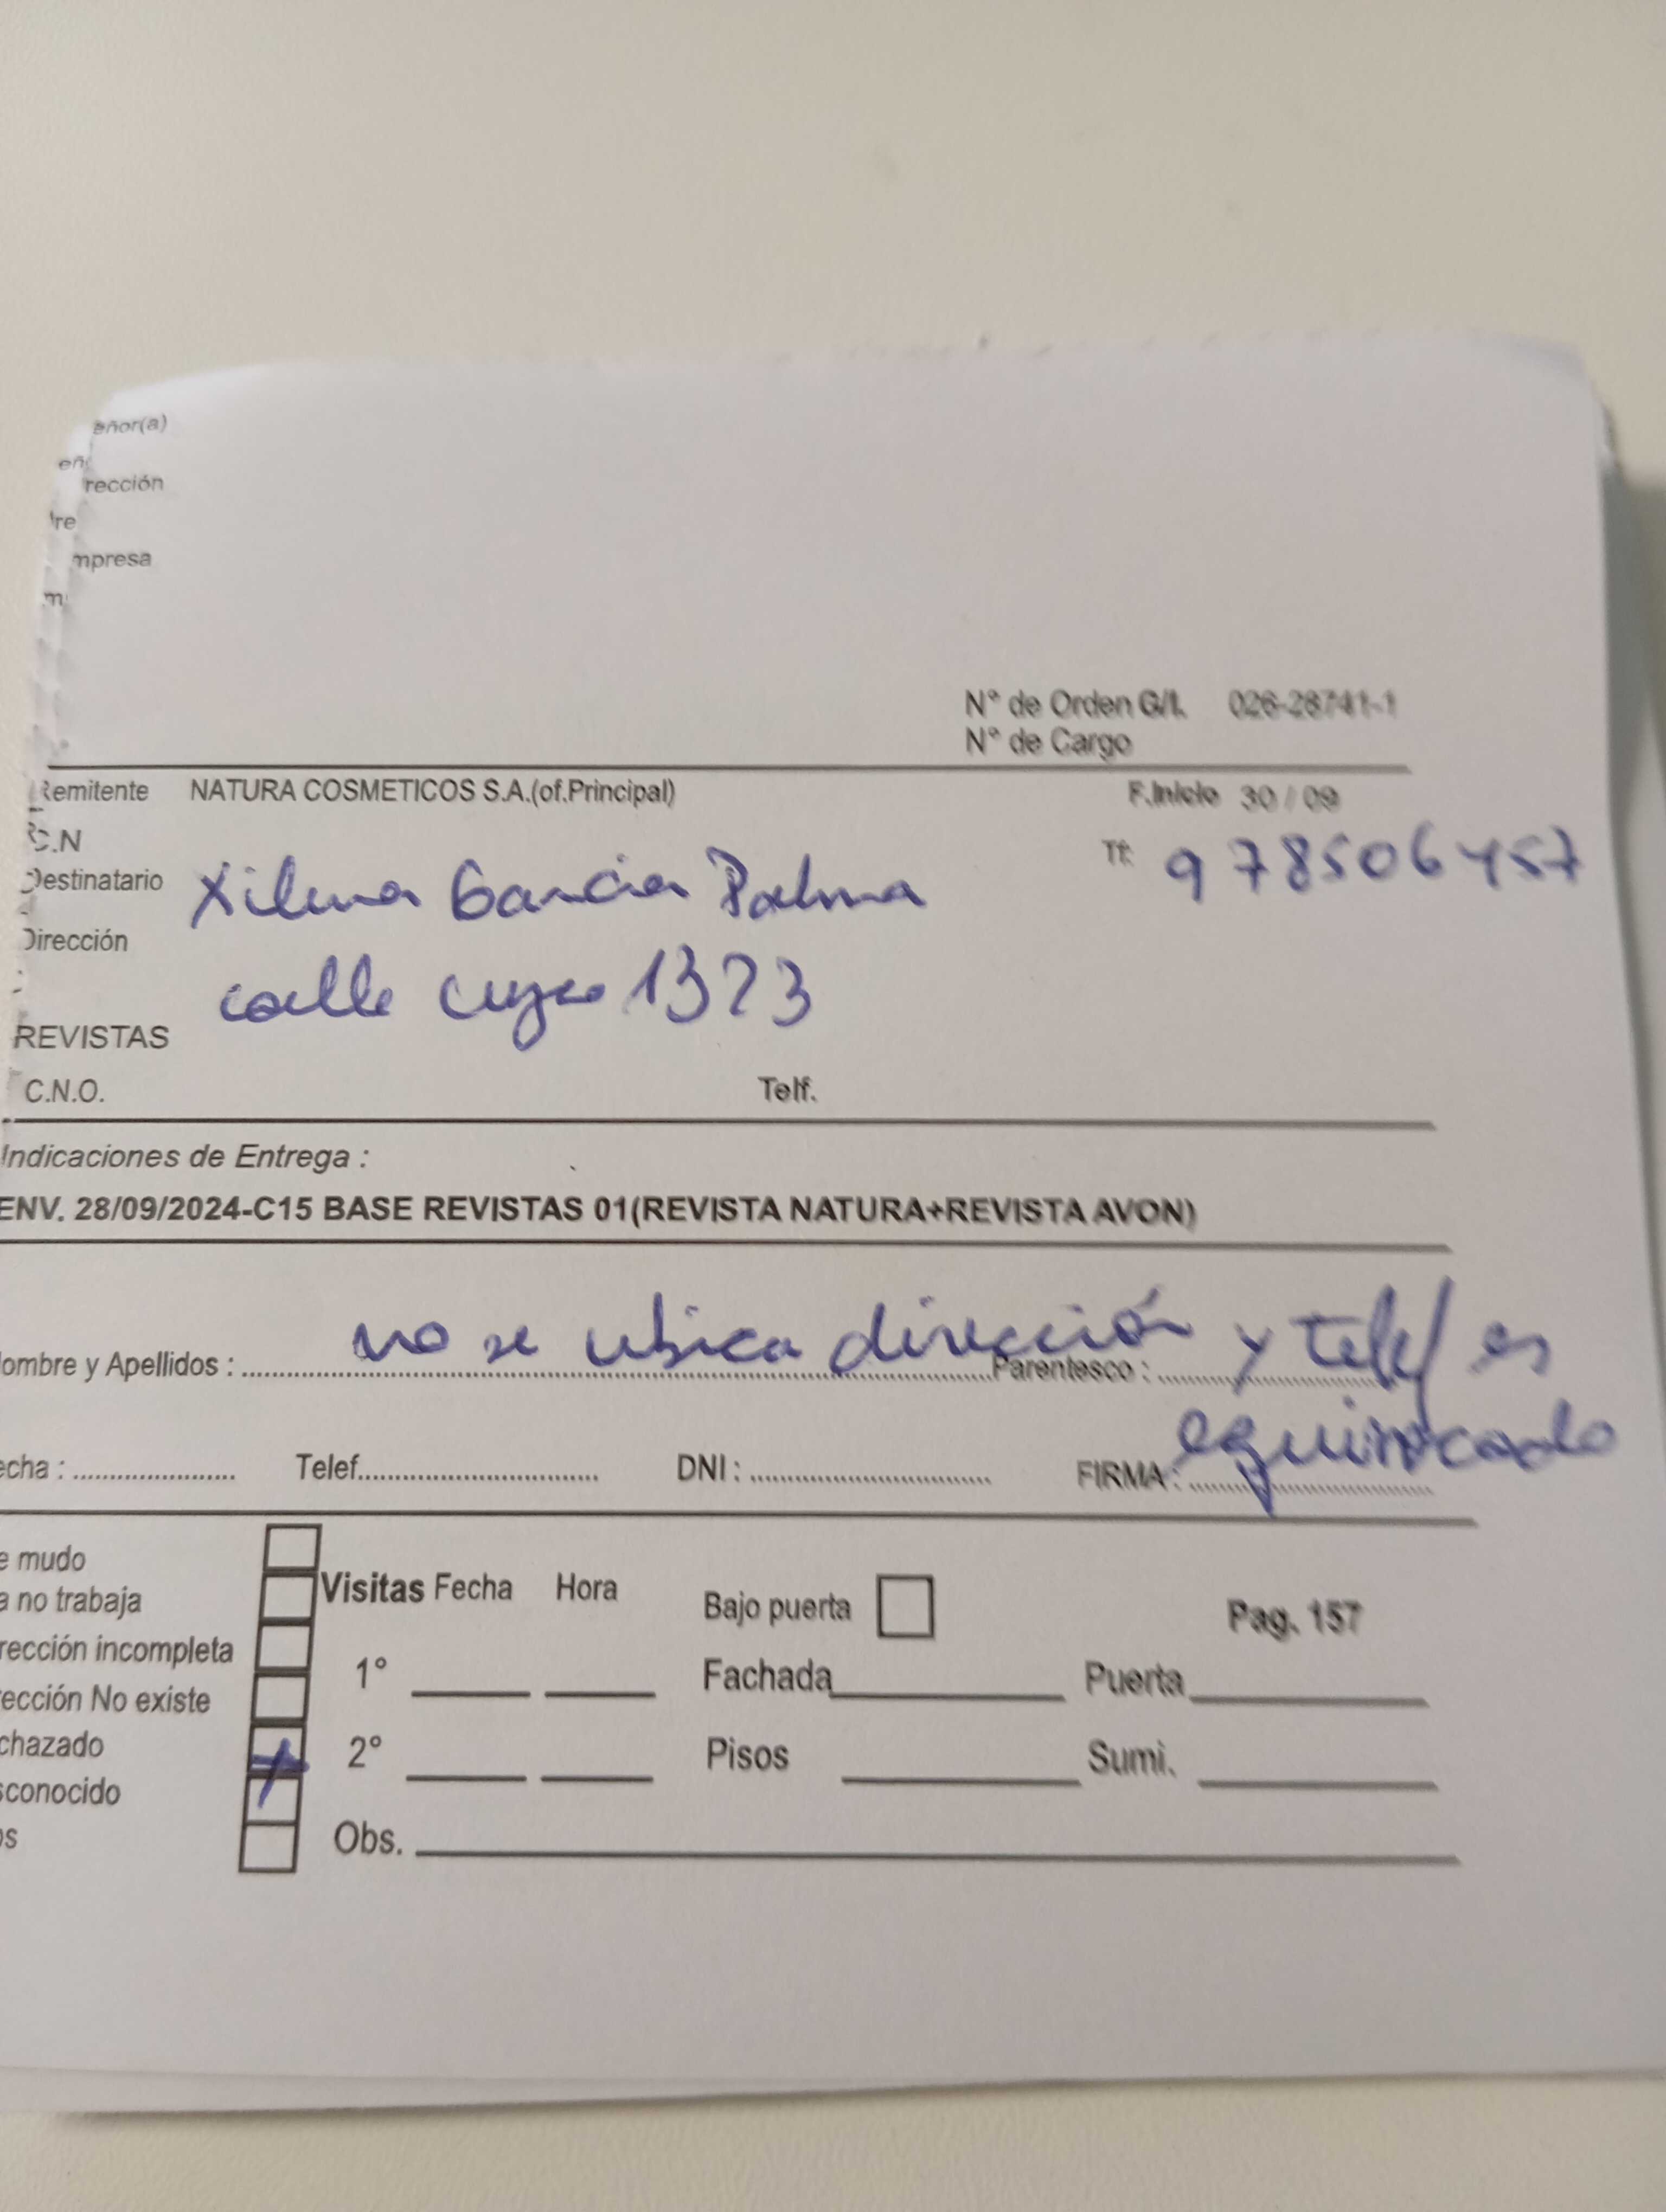 eñor(a)
eñ
rección
re
mpresa
m
N° de Orden G/I. 026-28741-1
N° de Cargo
Remitente NATURA COSMETICOS S.A.(of.Principal) F.Inicio 30 / 09
C.N
Destinatario Xilena Garcia Palma Tf: 978506457
Dirección calle cuzco 1323
REVISTAS
C.N.O. Telf.
Indicaciones de Entrega :
ENV. 28/09/2024-C15 BASE REVISTAS 01(REVISTA NATURA+REVISTA AVON)
no se ubica dirección y telef es
ombre y Apellidos : Parentesco :
equivocado
echa : Telef. DNI : FIRMA :
e mudo
a no trabaja Visitas Fecha Hora Bajo puerta Pag. 157
rección incompleta
1° Fachada Puerta
ección No existe
chazado 2° Pisos Sumi.
sconocido
os Obs.